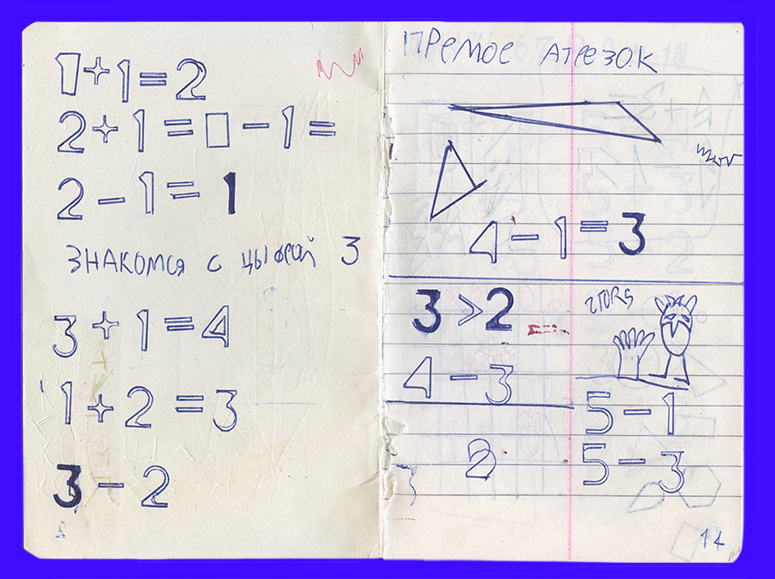 1+1=2
2+1=□-1=
2-1=1
ЗНАКОМСЯ С ЦЫФРОЙ 3
3+1=4
1+2=3
3-2
ПРЕМОЕ АТРЕЗОК
4-1=3
3>2
4-3
5-1
2
5-3
14